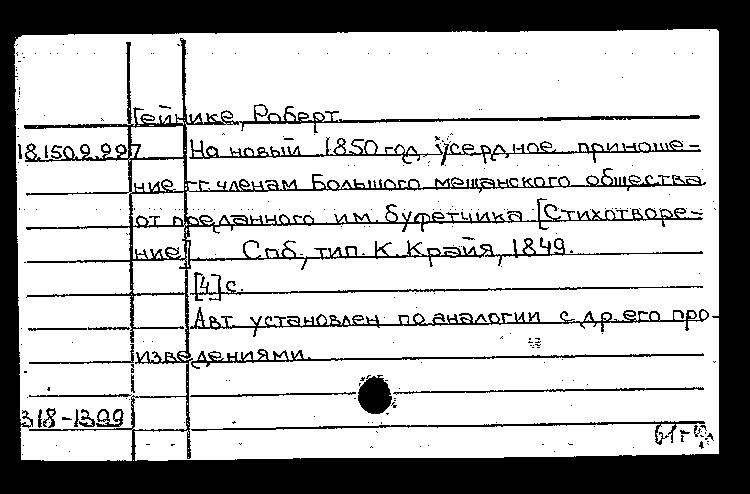 Гейнике, Роберт.
18.150.9.997 На новый 1850 год усердное приноше-
ние гг. членам Большого мещанского общества
от преданного им. буфетчика [Стихотворе-
ние]. Спб, тип. К. Крайя, 1849.
[4] с.
Авт. установлен по аналогии с др. его про-
изведениями.
318-1399